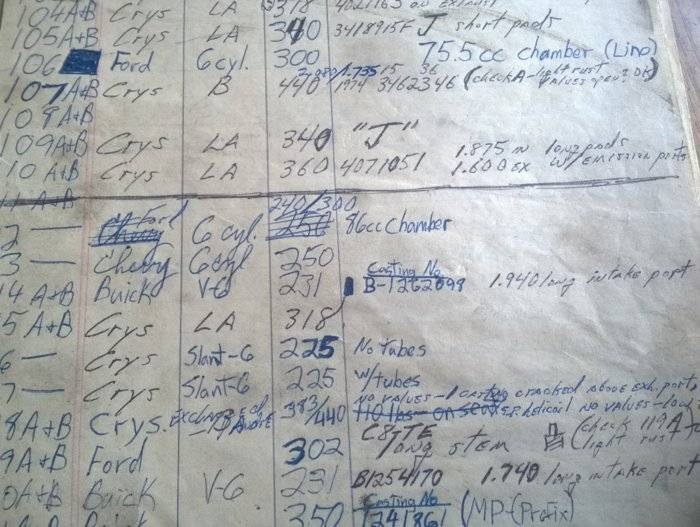 104A+B Crys LA 318 4027163 on exhaust
105A+B Crys LA 340 3418915F J short pads
106 Ford 6cyl. 300 75.5cc chamber (Lino)
107A+B Crys B 440 2.080/1.735 15 36 1974 3462346 (check A-light rust VALUES OK)
108A+B
109A+B Crys LA 340 "J" 1.875 IN long pads
10 A+B Crys LA 360 4071051 1.600 EX W/emission ports
11 A+B
2 — Ford 6 cyl. 240/300 250 86cc Chamber
3 — Chevy 6cyl 250
4 A+B Buick V-6 231 Casting No B-1262098 1.940 long intake port
5 A+B Crys LA 318
6 — Crys Slant-6 225 No tubes
7 — Crys Slant-6 225 w/tubes
8A+B Crys. 383/440 NO VALUES-1 casting cracked above exh. port
NO VALUES
9A+B Ford 302 C8TE long stem (check 119A light rust
0A+B Buick V-6 231 B1254170 1.740 long intake port
350 Casting No (MP-(Prefix)